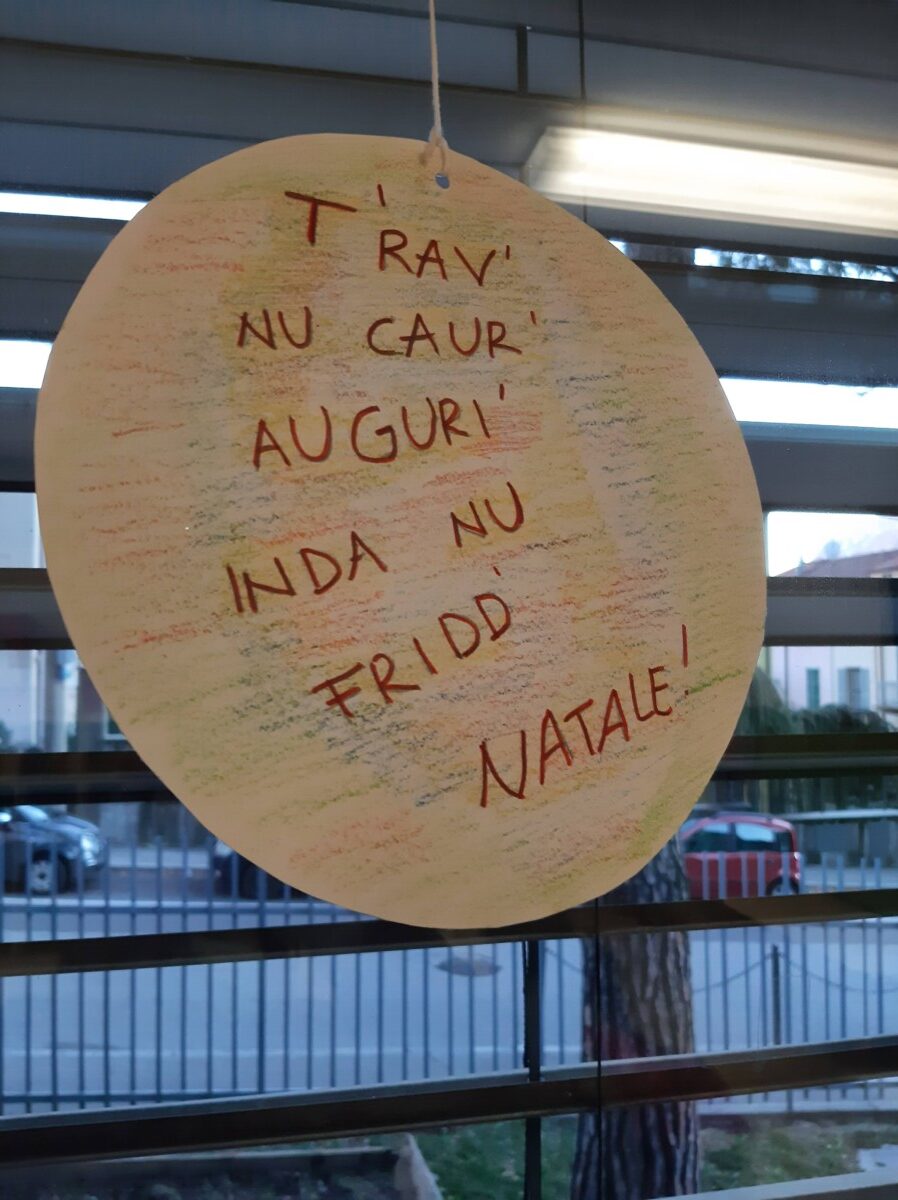 T'
RAV'
NU CAUR'
AUGURI'
INDA NU
FRIDD'
NATALE'